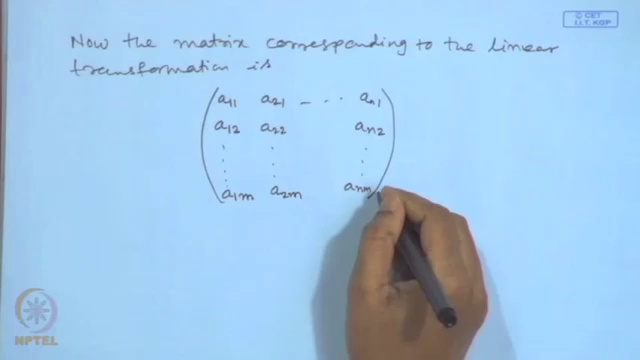 © CET
I.I.T. KGP
Now the matrix corresponding to the linear
transformation is
a11 a21 - ... an1
a12 a22 an2
a1m a2m anm
NPTEL